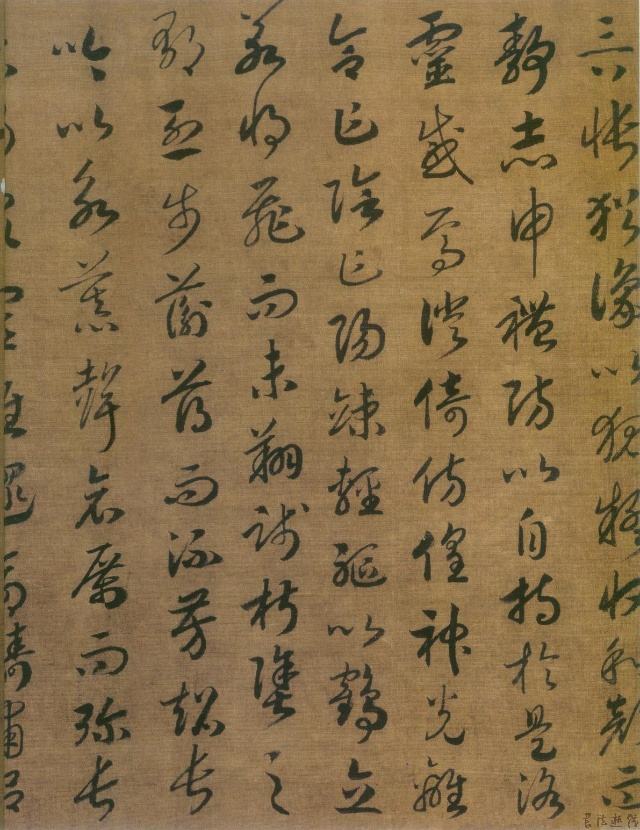 言悵猶豫以狐疑收和顏而
靜志申禮防以自持於是洛
靈感焉徙倚彷徨神光離
合乍陰乍陽竦輕軀以鶴立
若將飛而未翔踐椒塗之
郁烈步蘅薄而流芳超長
吟以永慕聲哀厲而彌長
靈雜遝命儔嘯侶